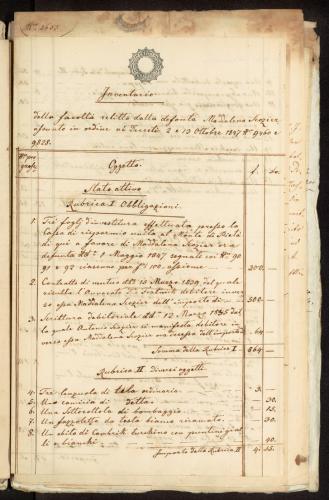 Inventario
della facoltà relitta dalla defonta Maddalena Scozier
assunto in ordine ai Decreti 2 e 13 Ottobre 1847 Nº 9460 e
9825.
Oggetto.
f. xn.
Stato attivo
Rubrica I Obbligazioni.
1. Tre fogli d'investitura effettuata presso la
Cassa di risparmio unita al Monte di Pietà
di qui a favore di Maddalena Scozier ora
defunta dd.º 1 Maggio 1847 segnate coi Nº 90
91 e 92 ciascuno per f. 100 assieme 300. —
2. Contratto di mutuo dd.º 15 Marzo 1839 del quale
risulta l'Augusto debitore inver
so essa Maddalena Scozier dell'importo di 500. —
3. Scrittura debitoriale dd.º 12 Marzo dal
la quale Antonio Scozier si manifesta debitore in
verso essa Maddalena Scozier dell'importo 64 —
Somma della Rubrica I 864 —
Rubrica II diversi oggetti.
4. Tre lenzuola di tela ordinaria 3 —
5. Una camicia di detta — 30.
6. Una Sottocottola di bombaggio — 15.
7. Un fazzoletto da testa bianco ricamato — 30.
8. Un abito di Cambrik turchino con puntini gial
li e bianchi — 40.
Importo della Rubrica II 4. 55.